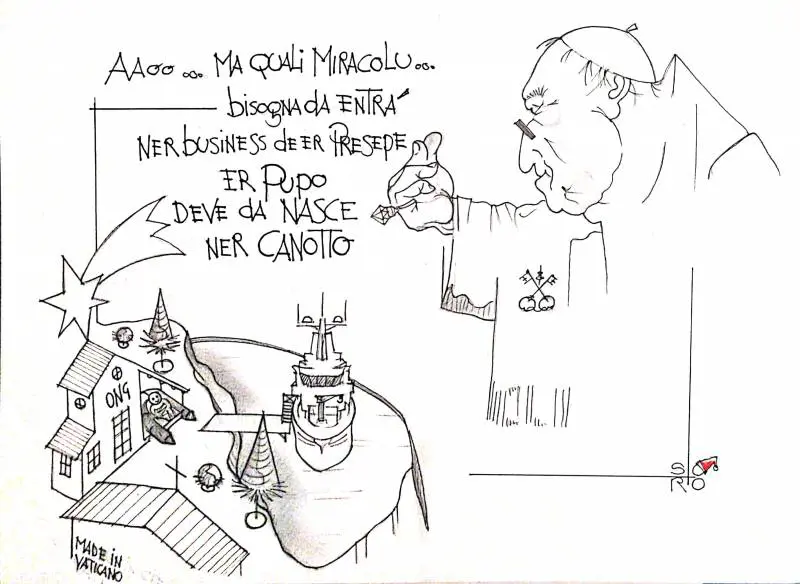 AAOO... MA QUALI MIRACOLU...
bisogna da ENTRA'
NER business de er PRESEPE
ER PUPO
DEVE DA NASCE
NER CANOTTO
ONG
MADE IN
VATICANO
SO
RO